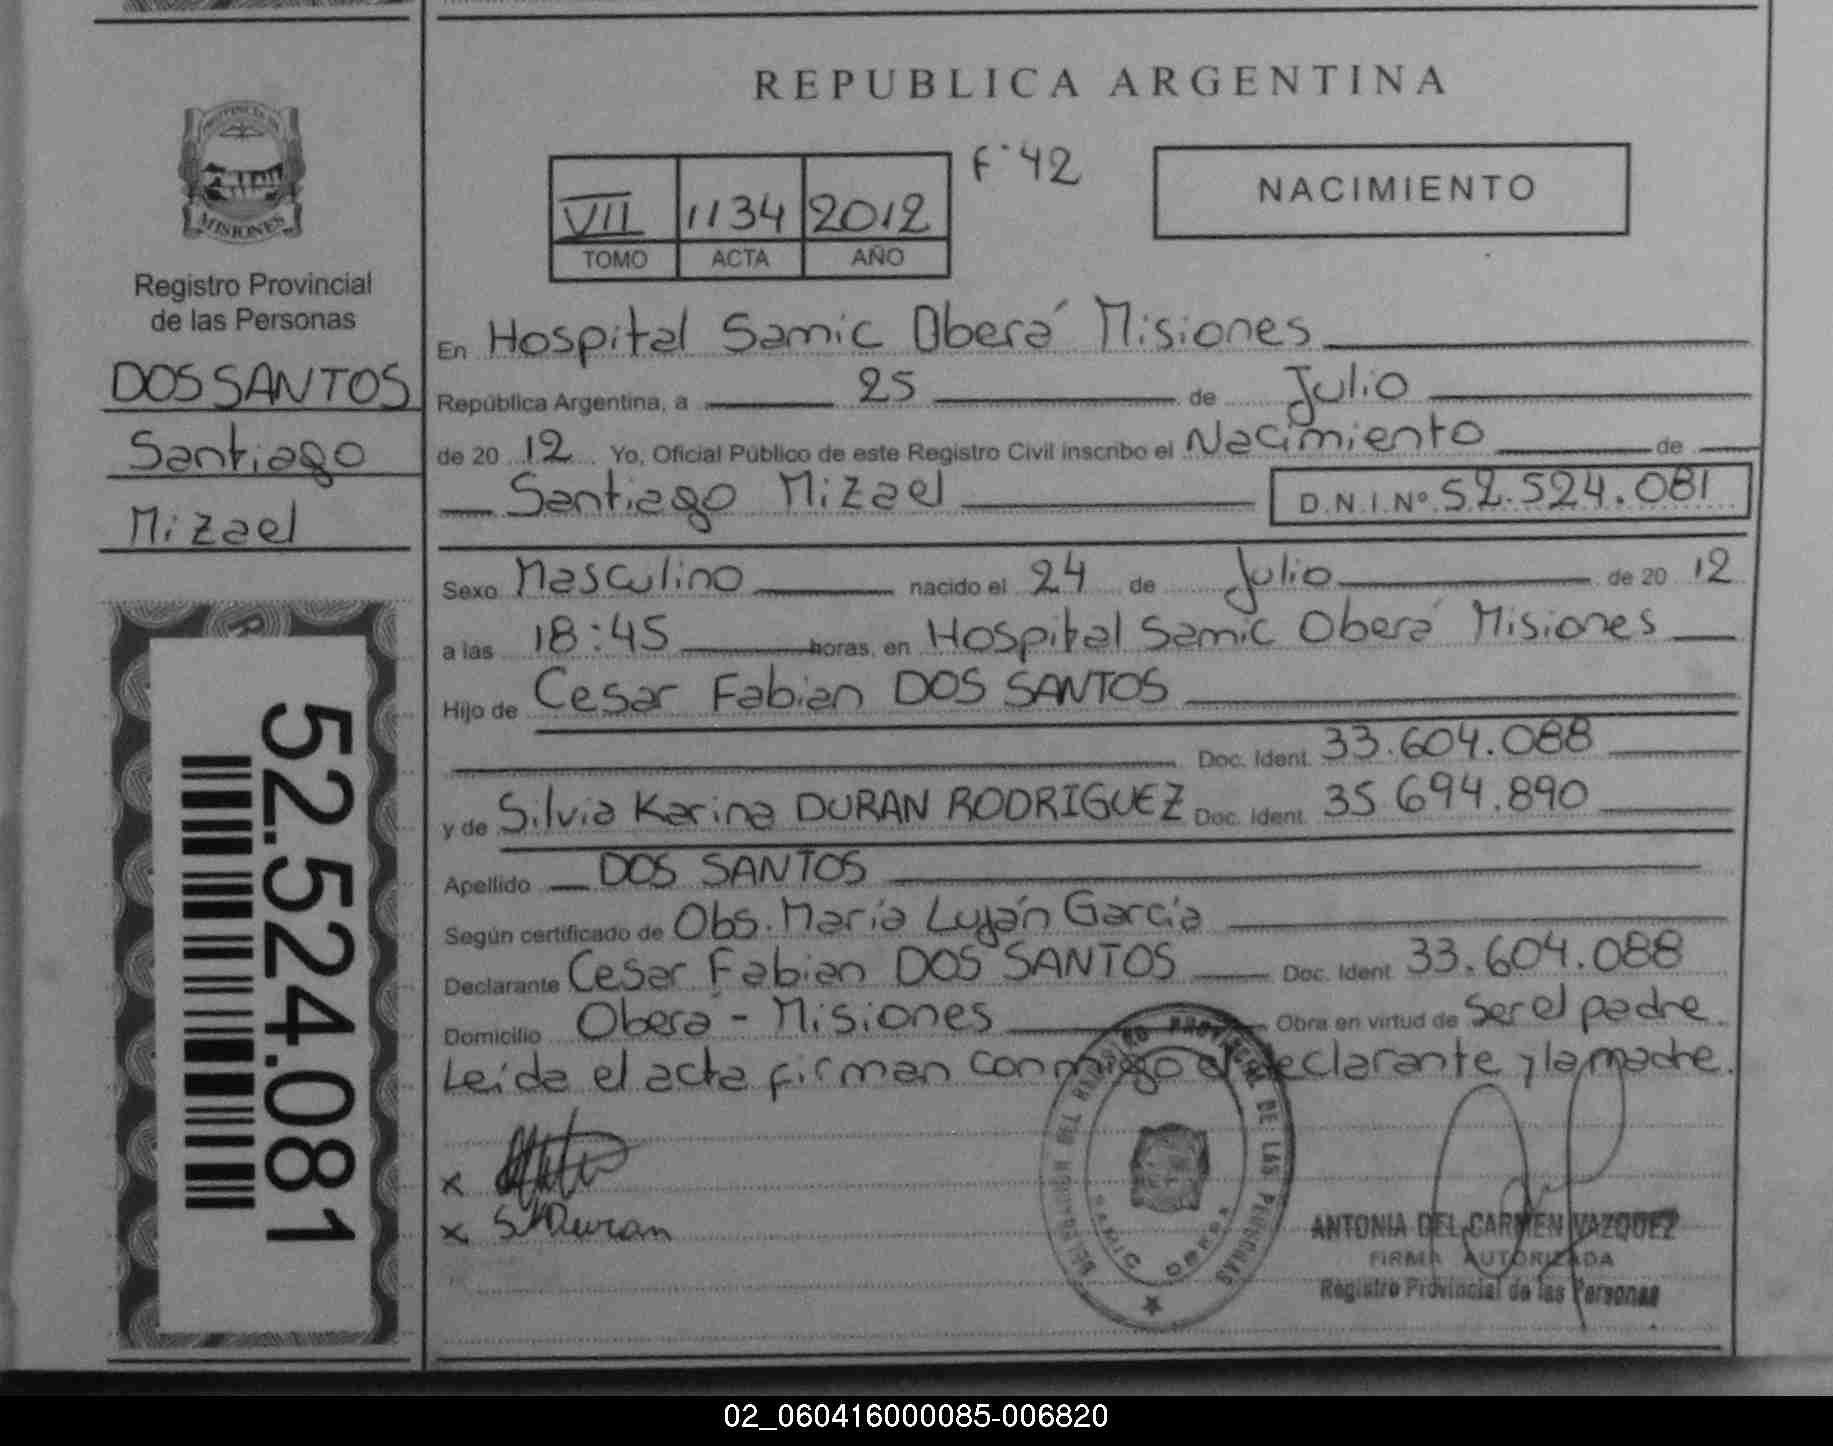 REPUBLICA ARGENTINA
PROVINCIA DE
MISIONES
Registro Provincial
de las Personas
DOS SANTOS
Santiago
Mizael
52.524.081
F° 42
NACIMIENTO
VII 1134 2012
TOMO ACTA AÑO
En Hospital Samic Oberá Misiones
República Argentina, a 25 de Julio
de 20 12 Yo, Oficial Público de este Registro Civil inscribo el Nacimiento de
Santiago Mizael D.N.I.Nº 52.524.081
Sexo Masculino nacido el 24 de Julio de 20 12
a las 18:45 horas, en Hospital Samic Oberá Misiones
Hijo de Cesar Fabian DOS SANTOS
Doc. Ident. 33.604.088
y de Silvia Karina DURAN RODRIGUEZ Doc. Ident. 35 694.890
Apellido DOS SANTOS
Según certificado de Obs. María Luján García
Declarante Cesar Fabian DOS SANTOS Doc. Ident. 33.604.088
Domicilio Oberá - Misiones Obra en virtud de Ser el padre.
Leída el acta firman conmigo el declarante y la madre.
x
x S K Duran
REGISTRO PROVINCIAL DE LAS PERSONAS
SAMIC OBERA
ANTONIA DEL CARMEN VAZQUEZ
FIRMA AUTORIZADA
Registro Provincial de las Personas
02_060416000085-006820